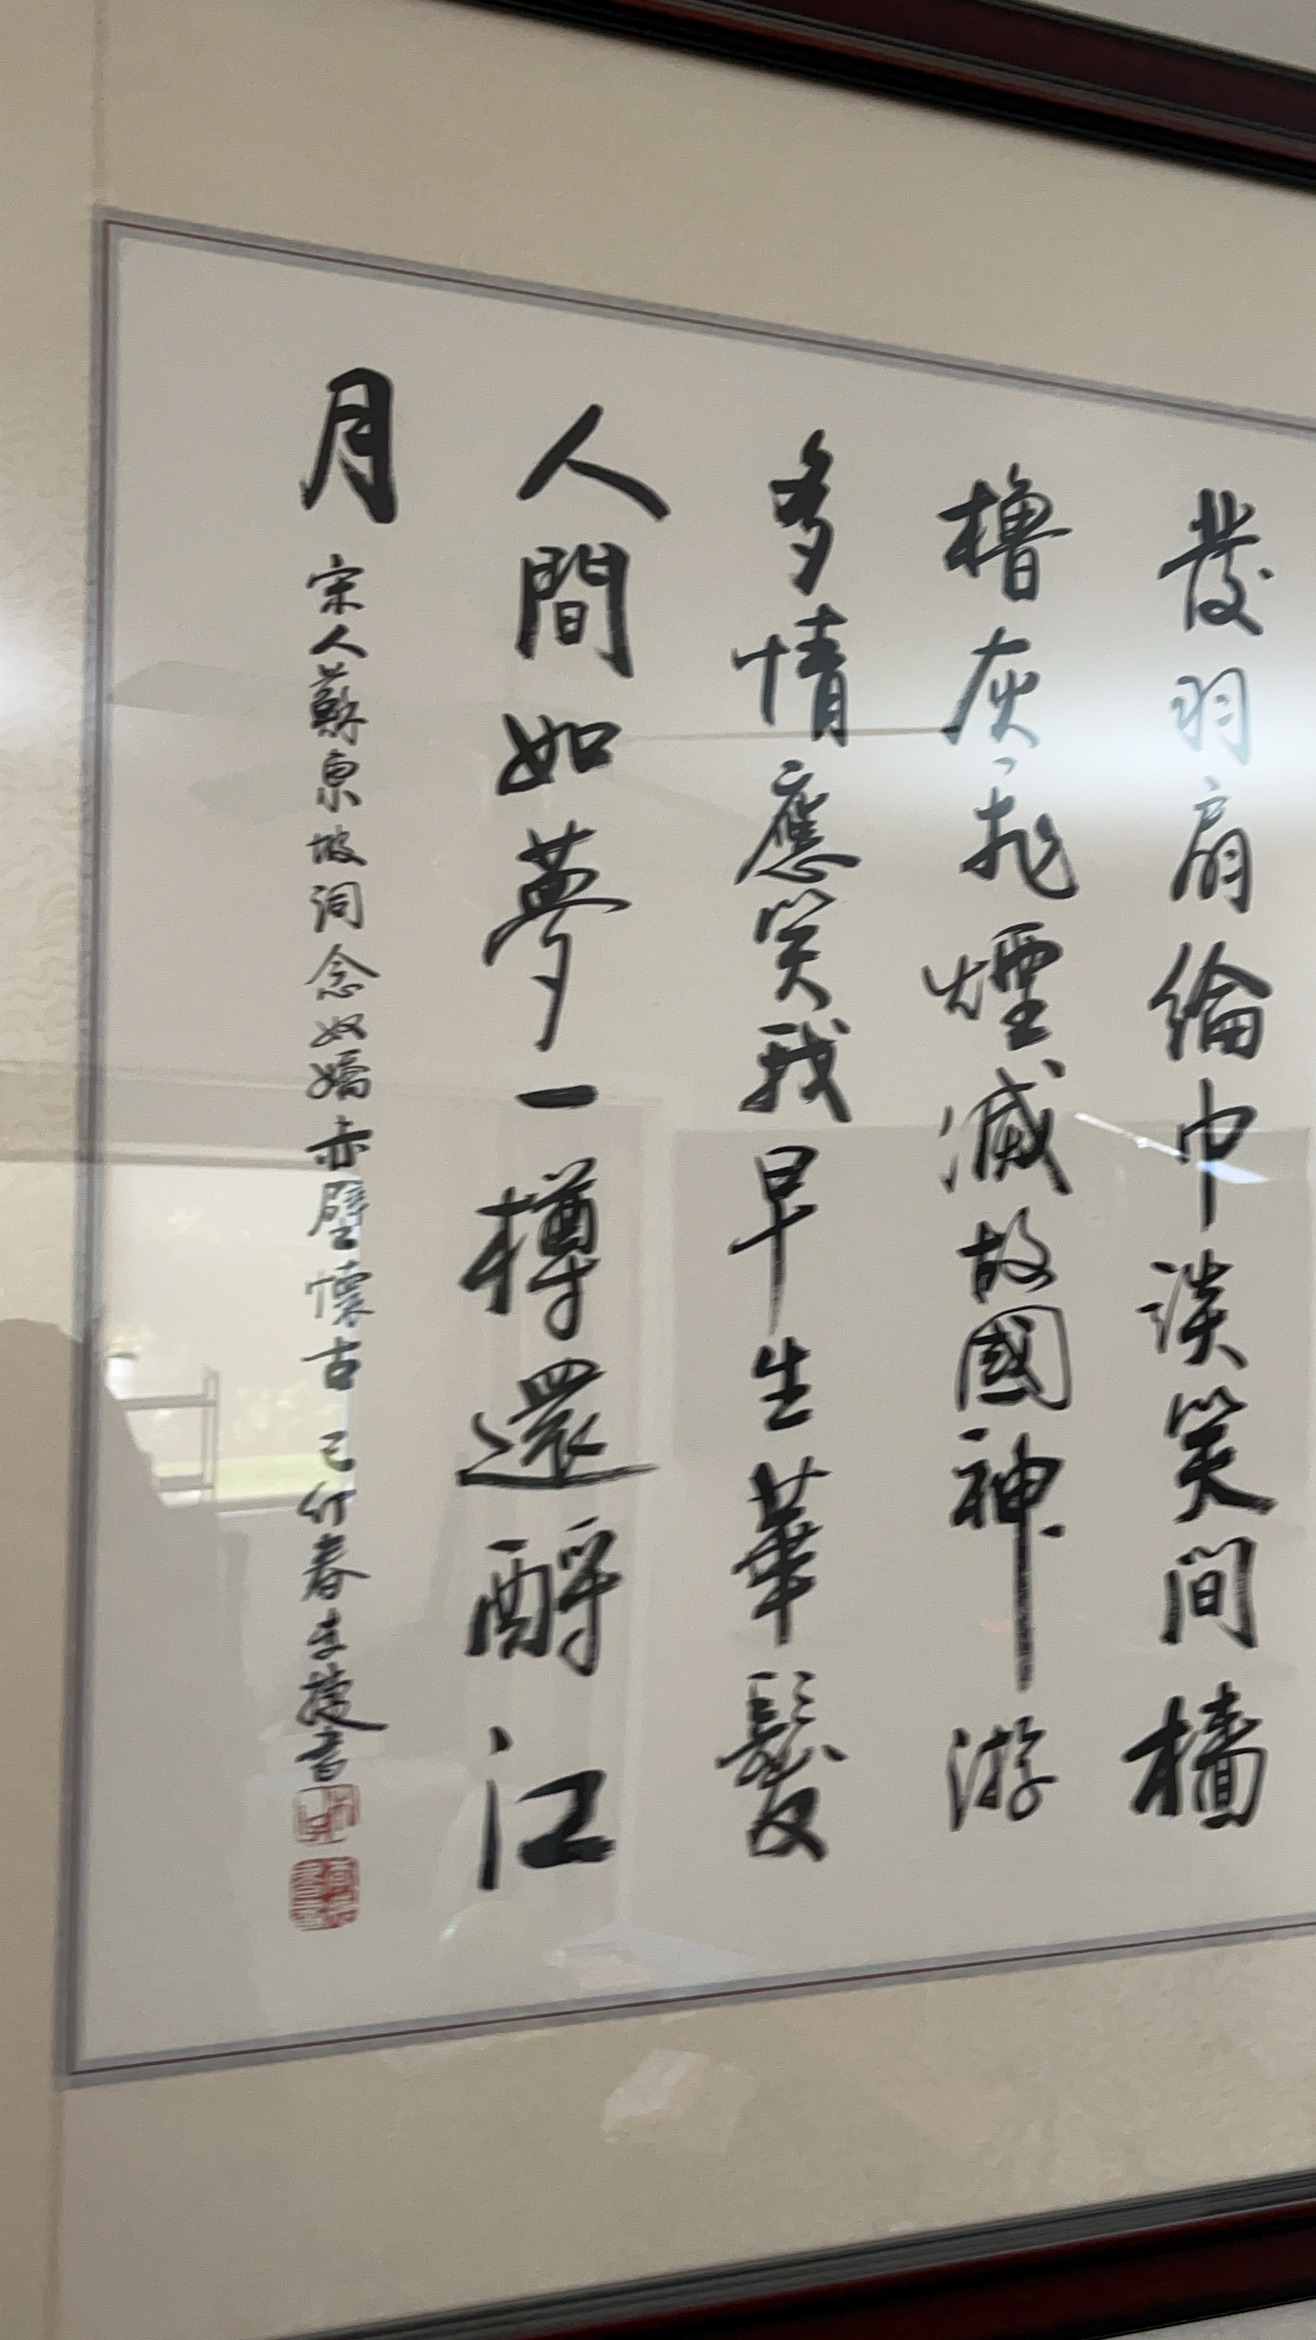 發羽扇綸巾談笑间檣
櫓灰飛煙滅故國神游
多情應笑我早生華髮
人間如夢一樽還酹江
月
宋人蘇東坡词念奴嬌赤壁懷古 己卯春李捷書